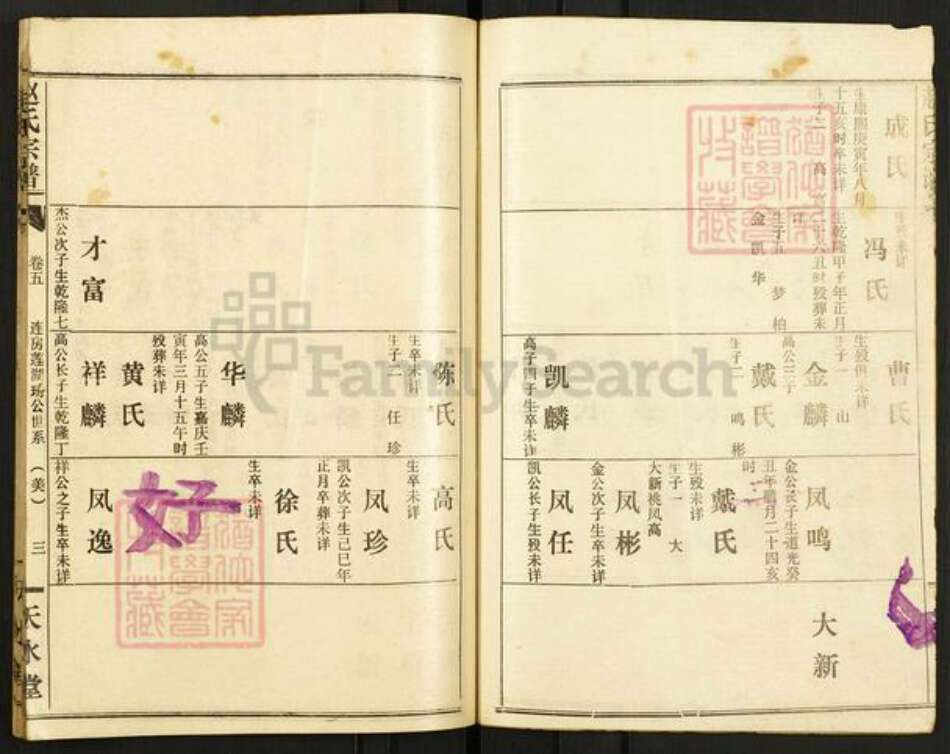 成氏
生康熙庚寅年八月
十五亥时卒未详
生子二 高 富
冯氏
生乾隆甲子年正月
廿六丑时殁葬未
详
生子五 梦 柏
金 凯 华
曹氏
生殁俱未详
生子一 山
金麟
高公三子
戴氏
生子二 鸣 彬
凯麟
高子四子生卒未详
凤鸣
金公长子生道光癸
丑年腊月二十四亥
时
戴氏
生殁未详
生子一 大
大新桃凤高
凤彬
金公次子生卒未详
凤任
凯公长子生殁未详
大新
陈氏
生卒未详
生子二 任 珍
华麟
高公五子生嘉庆壬
寅年三月十五午时
殁葬未详
黄氏
祥麟
高公长子生乾隆丁
高氏
生卒未详
凤珍
凯公次子生己巳年
正月卒葬未详
徐氏
生卒未详
好
凤逸
祥公之子生卒未详
才富
杰公次子生乾隆七
赵氏宗谱
卷五
(美)
三
天水堂
FamilySearch